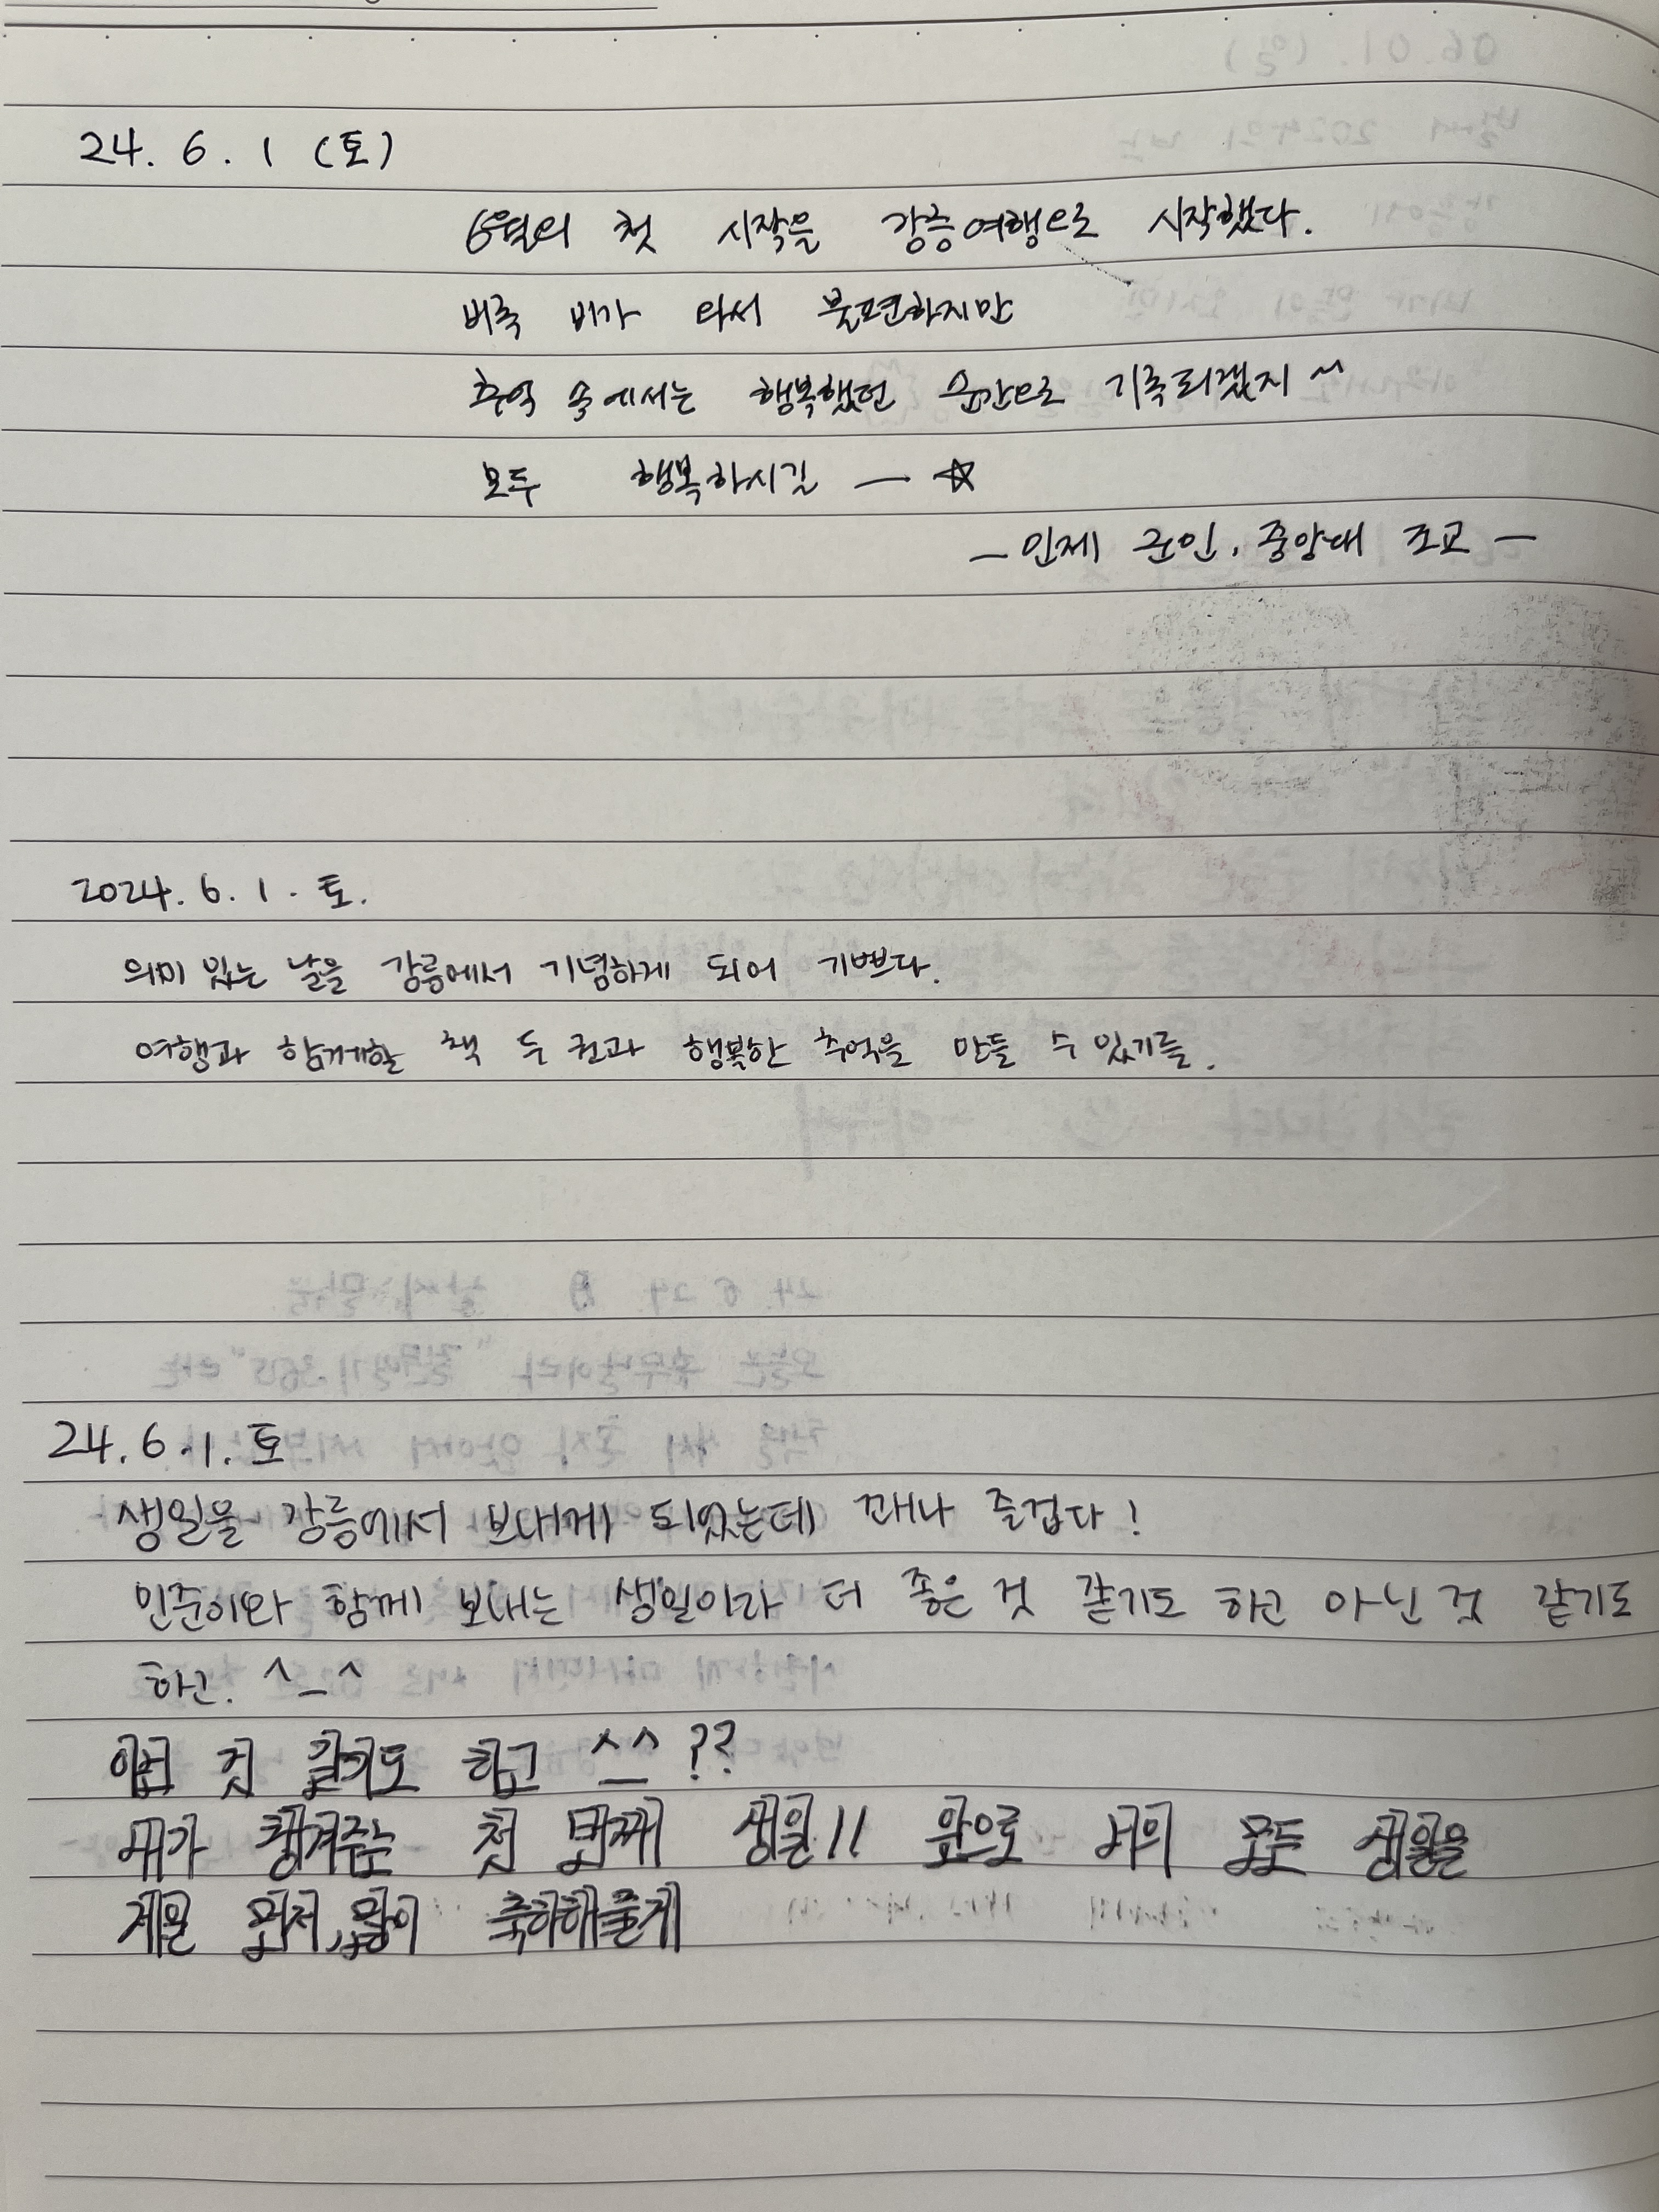 24. 6. 1 (토)
6월의 첫 시작을 강릉여행으로 시작했다.
비록 비가 와서 불편하지만
추억 속에서는 행복했던 순간으로 기록되겠지 ~
모두 행복하시길 — ☆
— 인제 군인, 중앙대 조교 —
2024. 6. 1. 토.
의미 있는 날을 강릉에서 기념하게 되어 기쁘다.
여행과 함께할 책 두 권과 행복한 추억을 만들 수 있기를.
24. 6. 1. 토
생일을 강릉에서 보내게 되었는데 꽤나 즐겁다!
민준이와 함께 보내는 생일이라 더 좋은 것 같기도 하고 아닌 것 같기도
하고. ^_^
아닌 것 같기도 하고 ^_^ ??
내가 챙겨주는 첫 번째 생일!! 앞으로 너의 모든 생일을
제일 먼저, 많이 축하해줄게